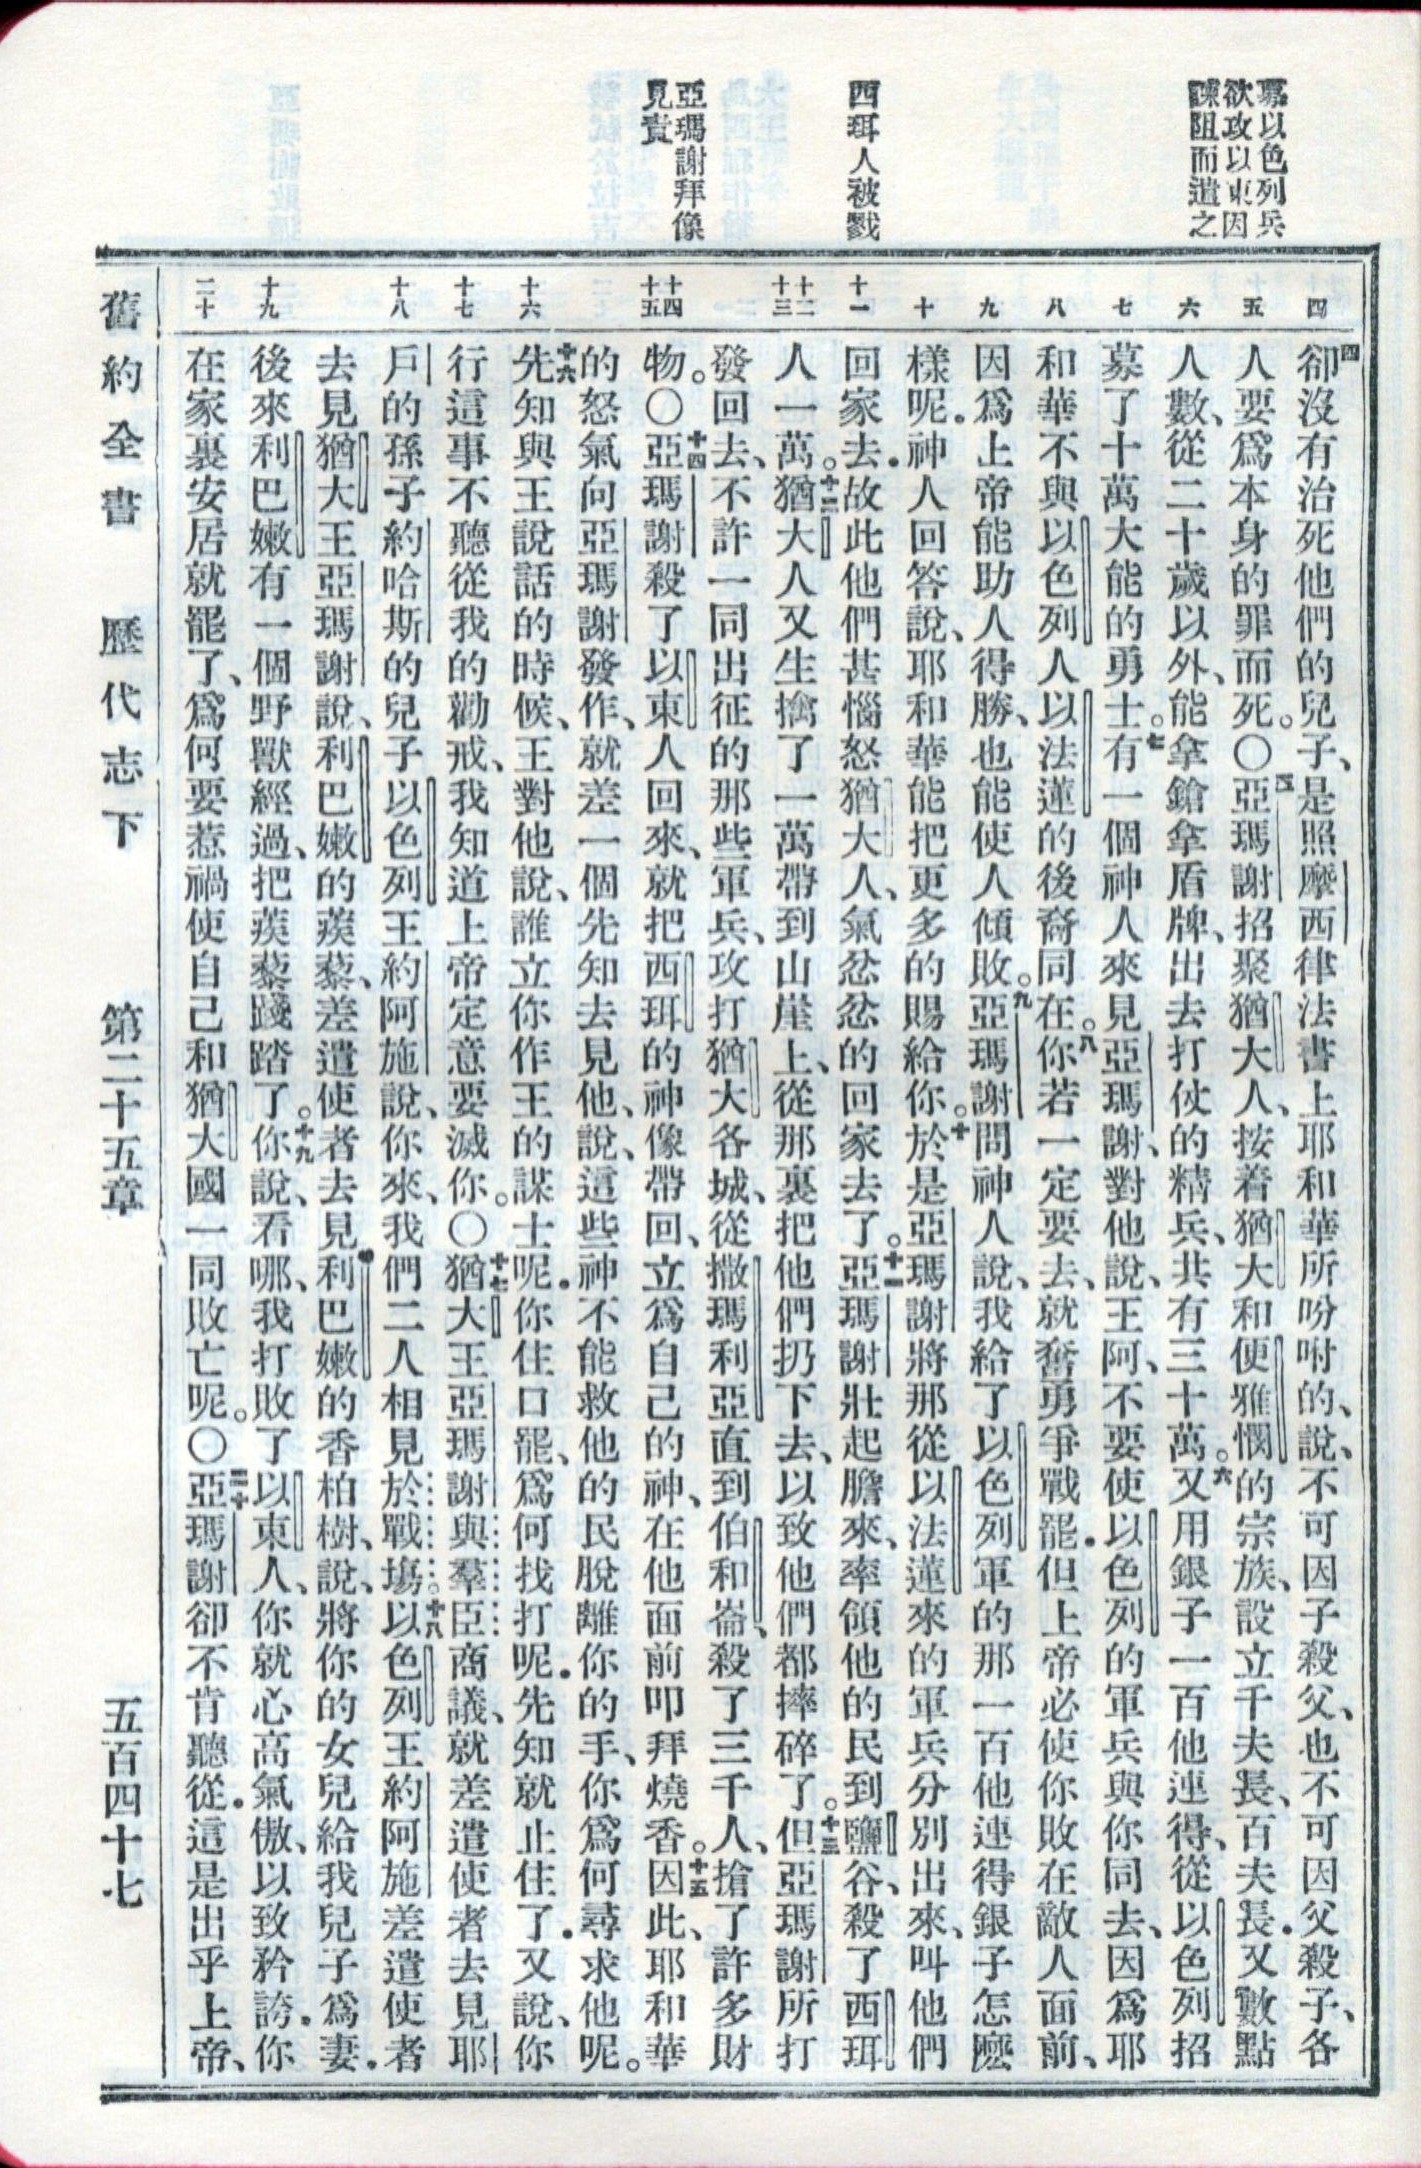 募以色列兵
欲攻以東因
諫阻而遣之
西珥人被戮
亞瑪謝拜像
見責
四
五
六
七
八
九
十
十一
十二
十三
十四
十五
十六
十七
十八
十九
二十
四卻沒有治死他們的兒子、是照摩西律法書上耶和華所吩咐的、說、不可因子殺父、也不可因父殺子、各
人要爲本身的罪而死。〇五亞瑪謝招聚猶大人、按着猶大和便雅憫的宗族、設立千夫長、百夫長．又數點
人數、從二十歲以外、能拿鎗拿盾牌、出去打仗的精兵、共有三十萬。六又用銀子一百他連得、從以色列招
募了十萬大能的勇士。七有一個神人來見亞瑪謝、對他說、王阿、不要使以色列的軍兵與你同去、因爲耶
和華不與以色列人以法蓮的後裔同在。八你若一定要去、就奮勇爭戰罷．但上帝必使你敗在敵人面前、
因爲上帝能助人得勝、也能使人傾敗。九亞瑪謝問神人說、我給了以色列軍的那一百他連得銀子怎麼
樣呢．神人回答說、耶和華能把更多的賜給你。十於是亞瑪謝將那從以法蓮來的軍兵分別出來、叫他們
回家去．故此他們甚惱怒猶大人、氣忿忿的回家去了。十一亞瑪謝壯起膽來、率領他的民到鹽谷、殺了西珥
人一萬。十二猶大人又生擒了一萬帶到山崖上、從那裏把他們扔下去、以致他們都摔碎了。十三但亞瑪謝所打
發回去、不許一同出征的那些軍兵、攻打猶大各城、從撒瑪利亞直到伯和崙、殺了三千人、搶了許多財
物。〇十四亞瑪謝殺了以東人回來、就把西珥的神像帶回、立爲自己的神、在他面前叩拜燒香。十五因此、耶和華
的怒氣向亞瑪謝發作、就差一個先知去見他、說、這些神不能救他的民脫離你的手、你爲何尋求他呢。
十六先知與王說話的時候、王對他說、誰立你作王的謀士呢．你住口罷、爲何找打呢．先知就止住了．又說、你
行這事不聽從我的勸戒、我知道上帝定意要滅你。〇十七猶大王亞瑪謝與羣臣商議、就差遣使者去見耶
戶的孫子約哈斯的兒子以色列王約阿施說、你來、我們二人相見於戰塲。十八以色列王約阿施差遣使者
去見猶大王亞瑪謝說、利巴嫩的蒺藜、差遣使者去見利巴嫩的香柏樹、說、將你的女兒給我兒子爲妻．
後來利巴嫩有一個野獸經過、把蒺藜踐踏了。十九你說、看哪、我打敗了以東人、你就心高氣傲、以致矜誇．你
在家裏安居就罷了、爲何要惹禍使自己和猶大國一同敗亡呢。〇二十亞瑪謝卻不肯聽從．這是出乎上帝、
舊約全書 歷代志下 第二十五章 五百四十七